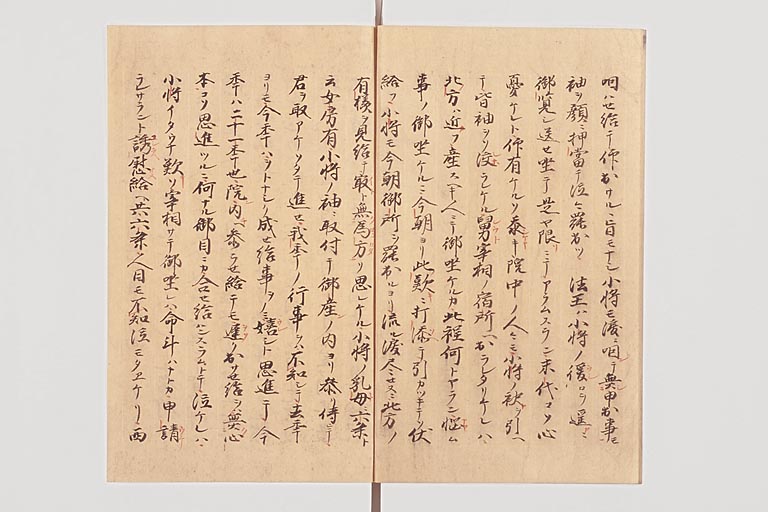 咽ハセ給テ仰出サルヽ旨モナシ小将モ涙ニ咽テ無申出事モ
袖ヲ顔ニ押當テ泣々罷出ツ　法王ハ小将ノ後ロヲ遥ニ
御覧シ送セ坐テ是ヤ限ニテアラムスラン末代コソ心
憂ケレト仰有ケルソ忝キ院中ノ人々モ小将ノ袂ヲ引ヘ
テ皆袖ヲソ湿ラシケル舅宰相ノ宿所ヘ出ラレタリケレハ
北方ハ近ク産スヘキ人ニテ御坐ケルカ此程何トヤラン悩ム
事ノ御坐ケルニ今朝ヨリ此歎ニ打添テ引カツキテソ伏
給フ小将モ今朝御所ヲ罷出ルヨリ流ル涙尽セヌニ北方ノ
有様ヲ見給テ最ト無為方ソ思シケル小将ノ乳母ニ六条ト
云女房有小将ノ袖ニ取付テ御産ノ内ヨリ参リ侍テ
君ヲ取アケソタテ進セ我年ノ行事ヲハ不知シテ去年
ヨリモ今年ハヲトナシク成セ給事ヲノミ嬉シト思進テ今
年ハ二十一年也院内ヘ参ラセ給テモ遅ク出サセ給ヲ無心
本コソ思進ツルニ何ナル御目ニカ合セ給ハンスラムトテ泣ケレハ
小将イタクナ歎ソ宰相サテ御坐レハ命斗ハナトカ申請
ラレサラント誘慰給ヘ共六条人目モ不知泣モタエケリ西